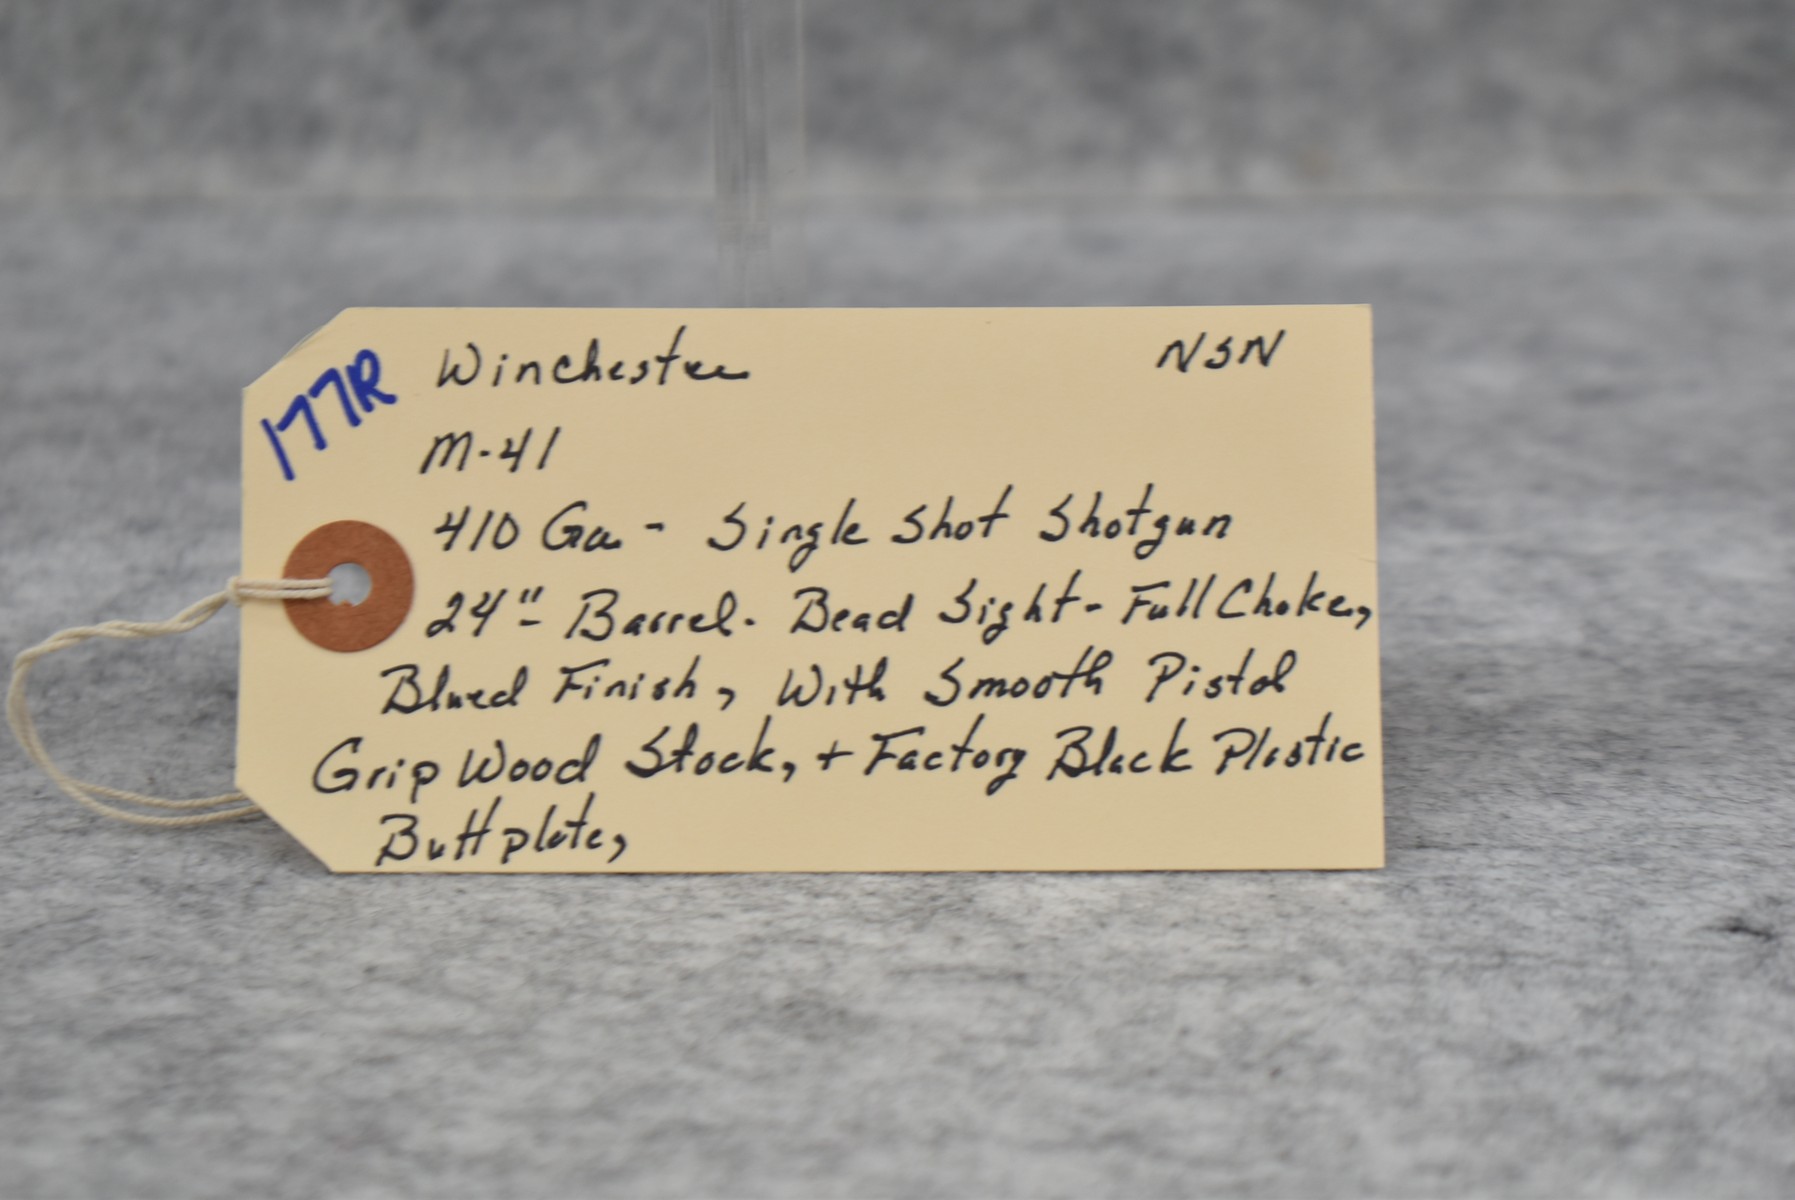 177R
Winchester NSN
M-41
410 Ga - Single Shot Shotgun
24"- Barrel. Bead Sight - Full Choke,
Blued Finish, With Smooth Pistol
Grip Wood Stock, + Factory Black Plastic
Buttplate,